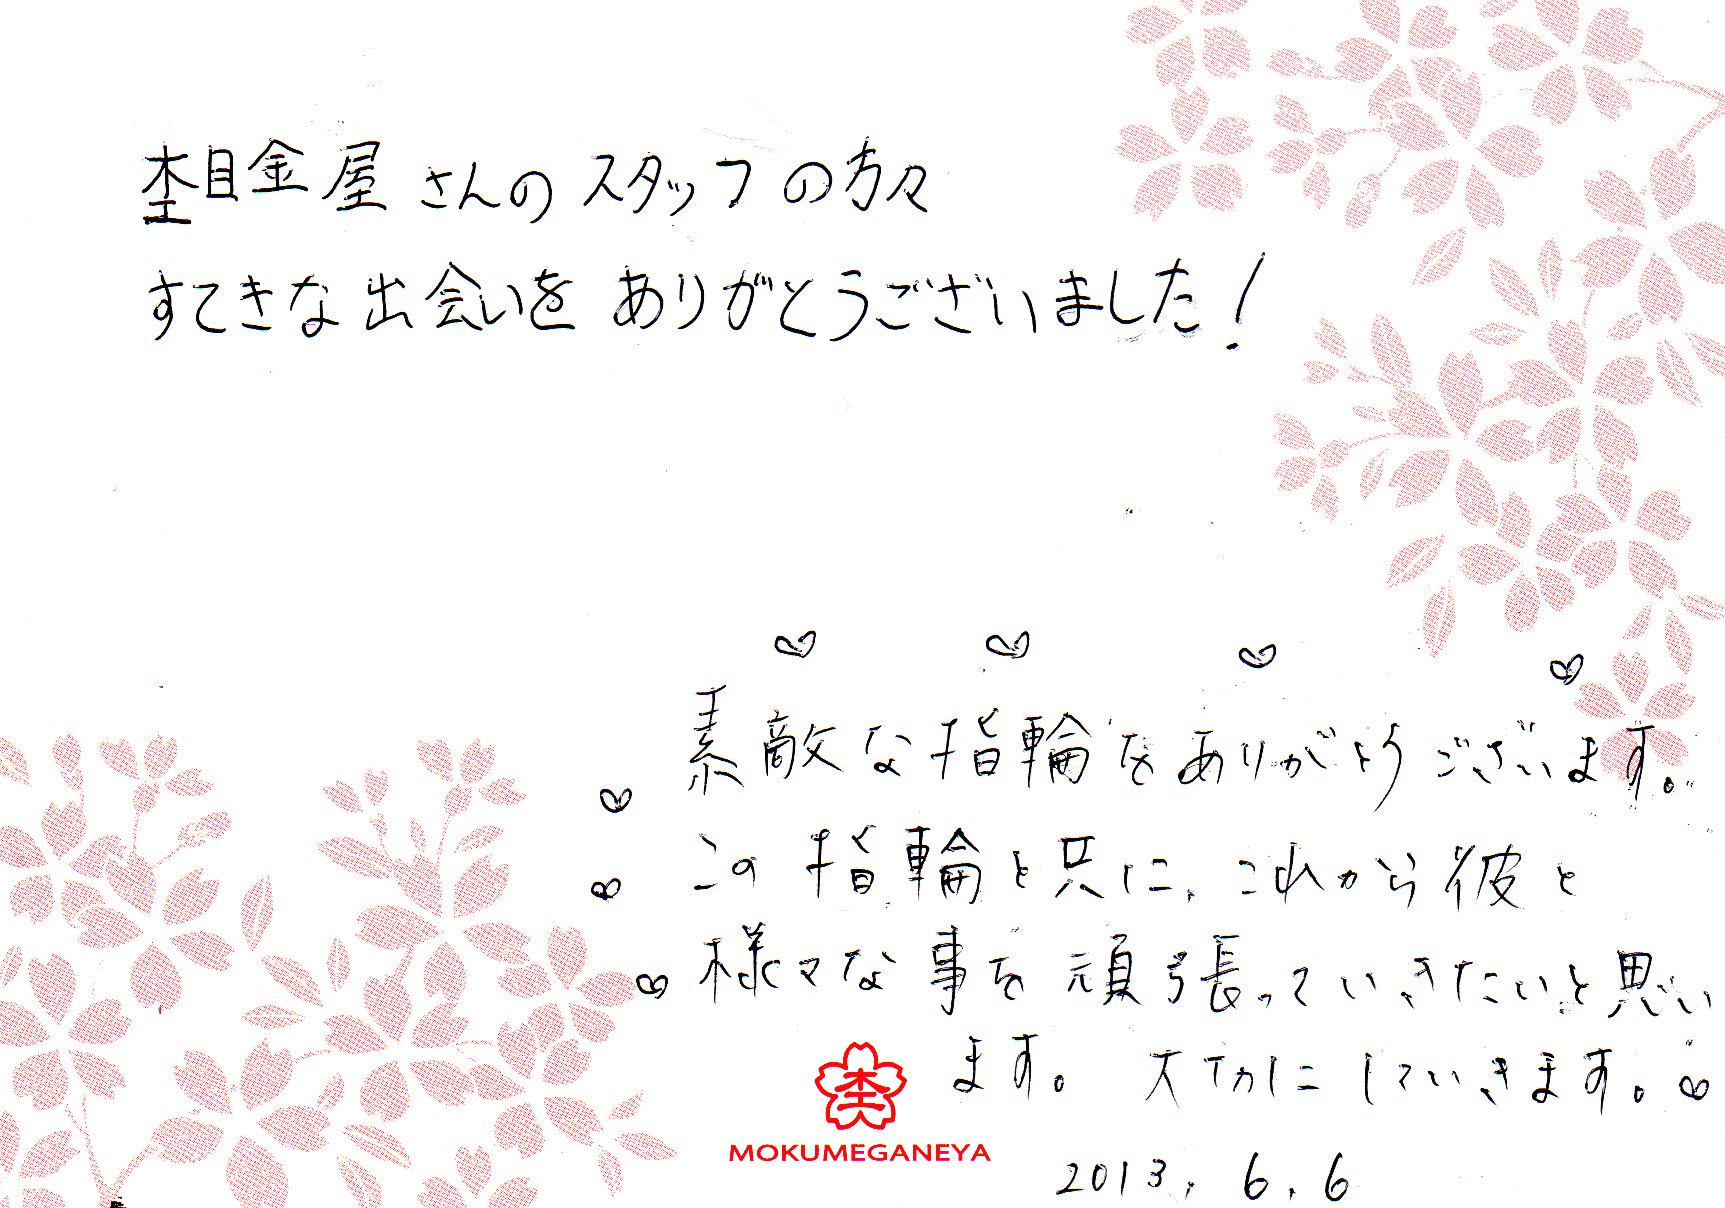 杢目金屋さんのスタッフの方々
すてきな出会いをありがとうございました！
素敵な指輪をありがとうございます。
この指輪と共に、これから彼と
様々な事を頑張っていきたいと思い
ます。大切にしていきます。
杢
MOKUMEGANEYA
2013. 6. 6